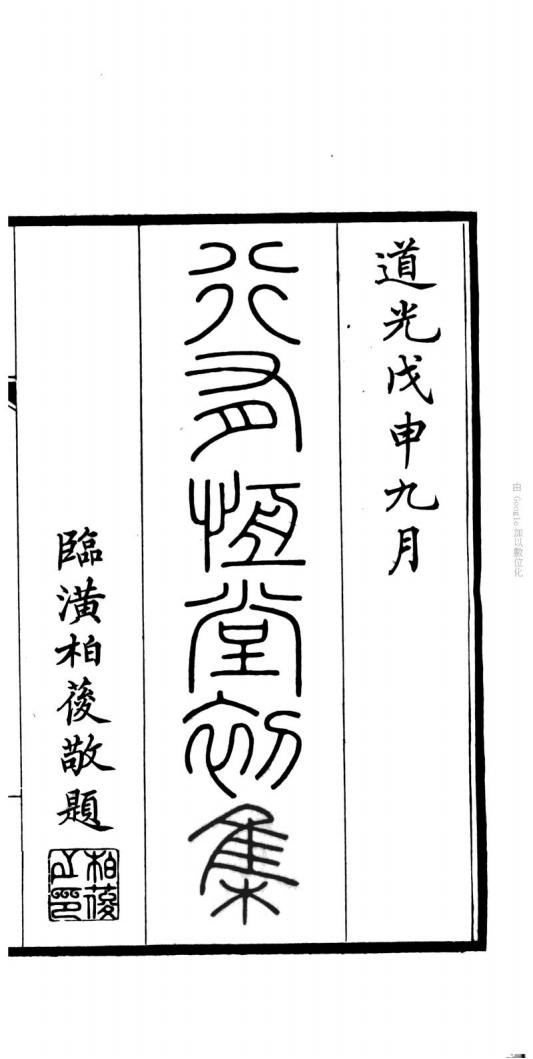 道光戊申九月
行有恆堂初集
臨潢柏葰敬題
柏葰之印
由 Google 加以數位化